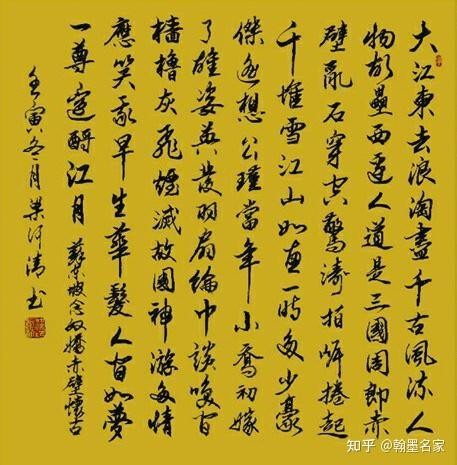 大江東去浪淘盡千古風流人
物故壘西邊人道是三國周郎赤
壁亂石穿空驚濤拍岸捲起
千堆雪江山如畫一時多少豪
傑遙想公瑾當年小喬初嫁
了雄姿英發羽扇綸巾談笑間
檣櫓灰飛煙滅故國神游多情
應笑我早生華髮人間如夢
一尊還酹江月 蘇東坡念奴嬌赤壁懷古
壬寅冬月梁河清书
知乎 @翰墨名家